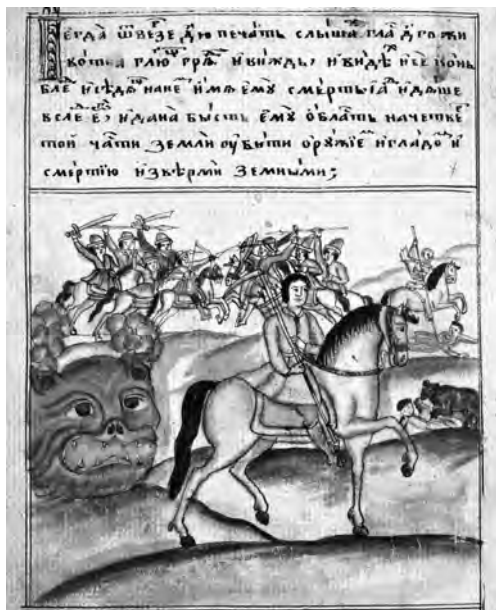 Егда ѿвезе д҃ю печать слышаⷯ глаⷭ д҃го жи
вотна глю гряⷣ и виждь, и видѣⷯ и се конь
блѣⷣ и сѣдяⷤ на не имя ему смерть и аⷣ идяше
вслеⷣ е и дана бысть ему область на четве
той чаⷭти земли оубити оружиеⷨ и гладоⷨ и
смертїю и звѣрми земными;